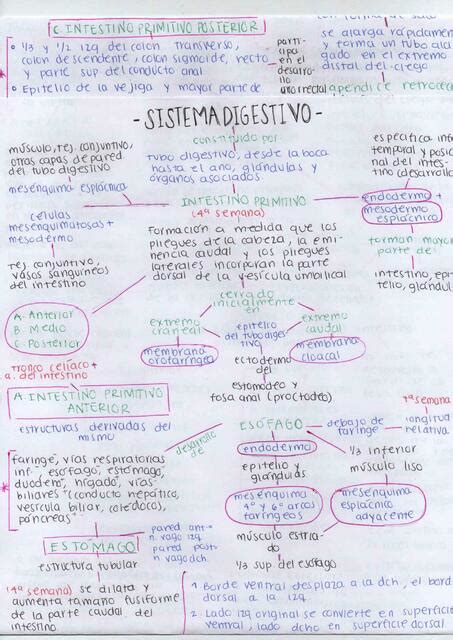 C. INTESTINO PRIMITIVO POSTERIOR
1/3 y 1/2 izq. del colon transverso,
colon descendente, colon sigmoide, recto
y parte sup del conducto anal
Epitelio de la vejiga y mayor parte de
partí-
cipa
en el
desarro
llo
urorectal
se alarga rápidamen
y forma un tubo ala
gado en el extremo
distal del ciego
apéndice retroce
- SISTEMA DIGESTIVO -
constituido
por
tubo digestivo, desde la boca
hasta el ano, glándulas y
órganos asociados
músculo, tej. conjuntivo,
otras capas de pared
del tubo digestivo
mesenquima esplácnica
células
mesenquimatosas +
mesodermo
tej. conjuntivo,
vasos sanguíneos
del intestino
INTESTINO PRIMITIVO
(4ª semana)
Formación a medida que los
pliegues de la cabeza, la emi
nencia caudal y los pliegues
laterales incorporan la parte
dorsal de la vesícula umbilical
especifica infor
temporal y posic
nal del intes-
tino (desarrollo
endodermo +
mesodermo
esplácnico
forman mayor
parte del
intestino, epi
telio, glándul
A. Anterior
B. Medio
C. Posterior
cerrado
inicialmente
en
extremo
craneal
membrana
orofaríngea
epitelio
del tubo diges
tivo
ectodermo
del
estomodeo y
fosa anal (proctodeo)
extremo
caudal
membrana
cloacal
tronco celíaco +
a. del intestino
A. INTESTINO PRIMITIVO
ANTERIOR
estructuras derivadas del
mismo
faringe, vías respiratorias
inf., esófago, estómago,
duodeno, hígado, vías
biliares (conducto hepático,
vesícula biliar, colédoco),
páncreas
desarrollo
de
ESÓFAGO
debajo de
faringe
7ª semana
longitud
relativa
endodermo
epitelio y
glándulas
mesenquima
4º y 6º arcos
faríngeos
músculo estria-
do
1/3 sup. del esófago
1/3 inferior
músculo liso
mesenquima
esplácnico
adyacente
ESTÓMAGO
pared ant →
n. vago izq.
pared post
n. vago dch.
estructura tubular
(4ª semana) se dilata y
aumenta tamaño fusiforme
de la parte caudal del
intestino
1. Borde ventral desplaza a la dch, el bord
dorsal a la izq.
2. Lado izq original se convierte en superficie
ventral, lado dcho en superficie dorsal.